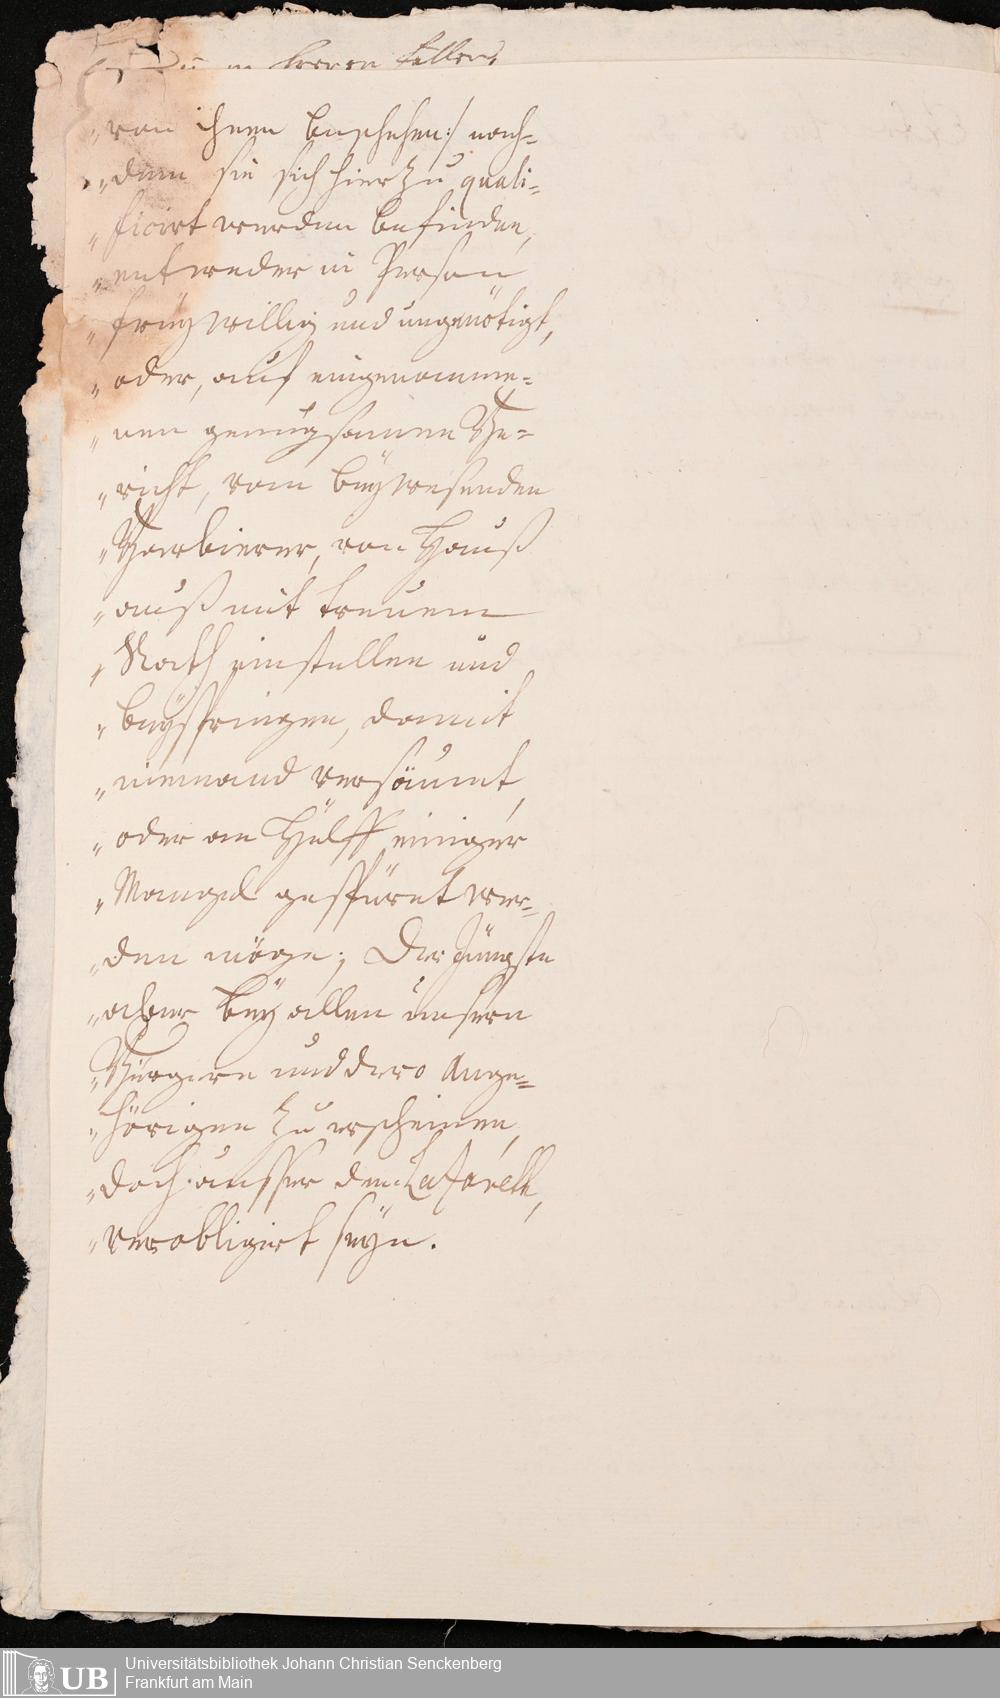 „von ihnen beschehen:/ nach-
„dem sie sich hierzu quali-
„ficirt werden befinden,
„entweder in Person
„freÿwillig und ungenötigt,
„oder, auf eingenomme-
„nen genugsamen Be-
„richt, vom beÿwesenden
„Barbierer, von Hauß
„auß mit treuem
„Rath einstellen und
„beÿspringen, damit
„niemand versäumt,
„oder an Hülff einiger
„Mangel gespüret wer-
„den möge; Der Jüngste
„aber beÿ allen unsern
„Bürgern und dero Ange-
„hörigen zu erscheinen,
„doch ausser dem Lazareth,
„verobligirt seÿn.
UB
Universitätsbibliothek Johann Christian Senckenberg
Frankfurt am Main